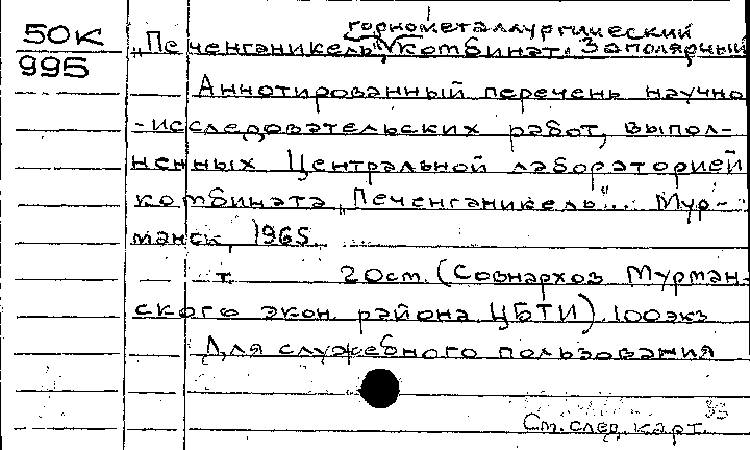 горнометаллургический
50К
995
„Печенганикель", комбинат. Заполярный
Аннотированный перечень научно
-исследовательских работ, выпол-
ненных Центральной лабораторией
комбината „Печенганикель"... Мур-
манск, 1965. ...
т. 20см. (Совнархоз Мурман-
ского экон. района. ЦБТИ). 100экз
Для служебного пользования
См. след. карт.